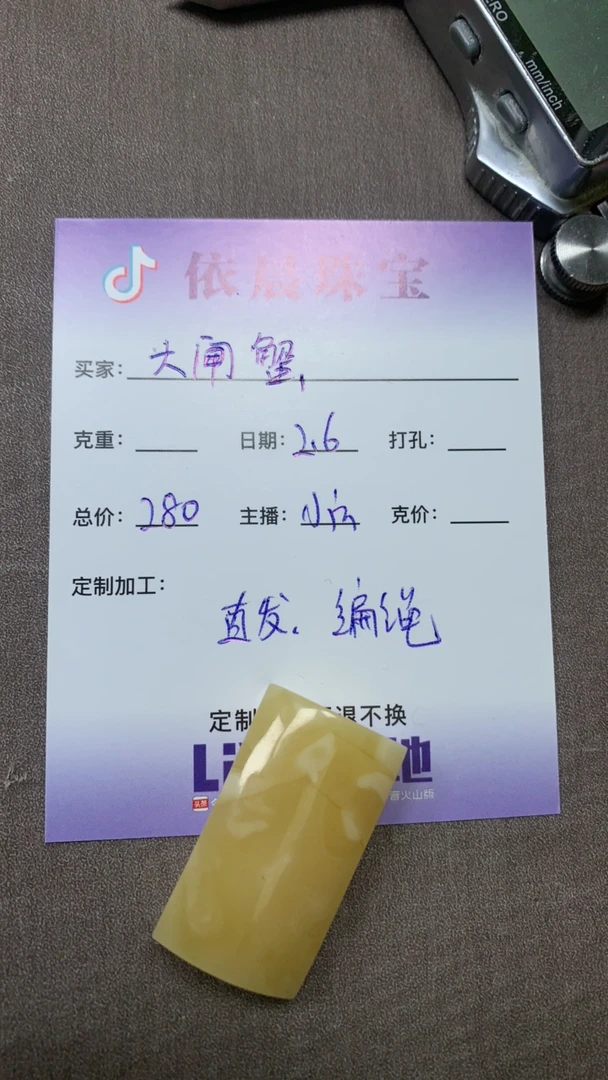 ZERO
mm/inch
依晨珠宝
买家：大闸蟹
克重： 日期：2.6 打孔：
总价：280 主播： 克价：
定制加工：
直发. 编绳
定制 退不换
Li 地
头条 音火山版